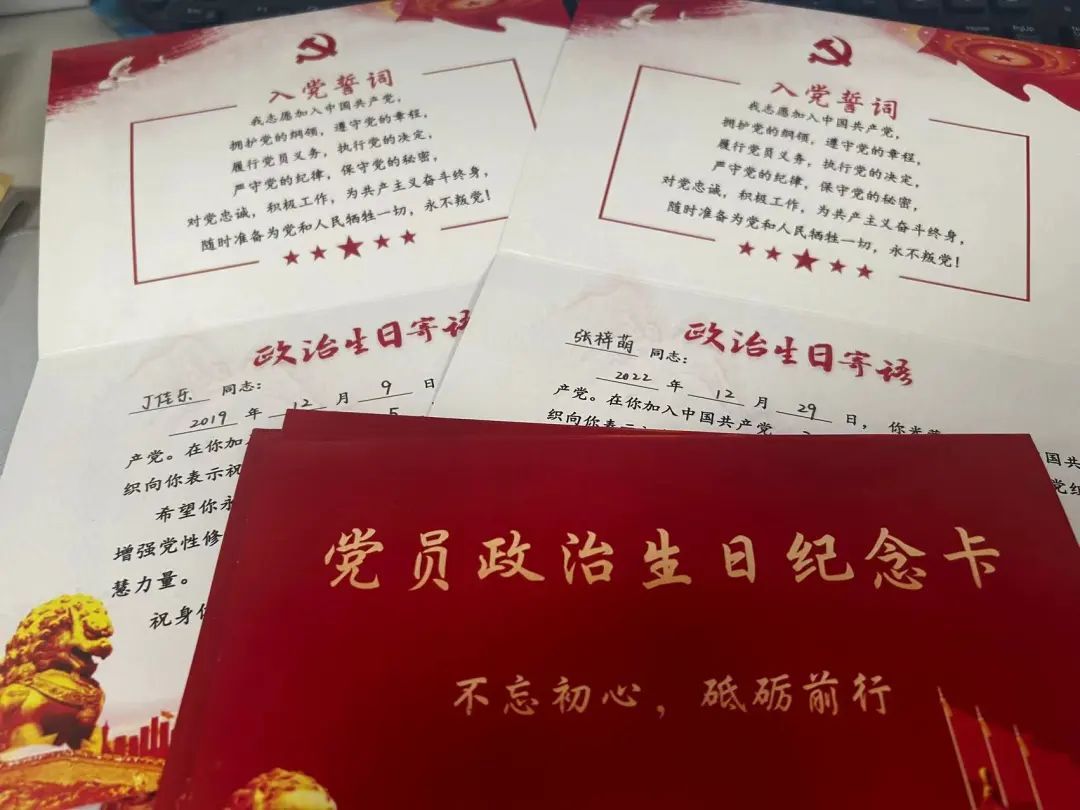 入党誓词
我志愿加入中国共产党，
拥护党的纲领，遵守党的章程，
履行党员义务，执行党的决定，
严守党的纪律，保守党的秘密，
对党忠诚，积极工作，为共产主义奋斗终身，
随时准备为党和人民牺牲一切，永不叛党！
政治生日寄语
丁佳乐 同志：
2019 年 12 月 9 日
产党。在你加
织向你表示祝
希望你永
增强党性修
慧力量。
祝身
入党誓词
我志愿加入中国共产党，
拥护党的纲领，遵守党的章程，
履行党员义务，执行党的决定，
严守党的纪律，保守党的秘密，
对党忠诚，积极工作，为共产主义奋斗终身，
随时准备为党和人民牺牲一切，永不叛党！
政治生日寄语
张梓萌 同志：
2022 年 12 月 29 日，你光荣
产党。在你加入中国共产党
织向你表示
党员政治生日纪念卡
不忘初心，砥砺前行